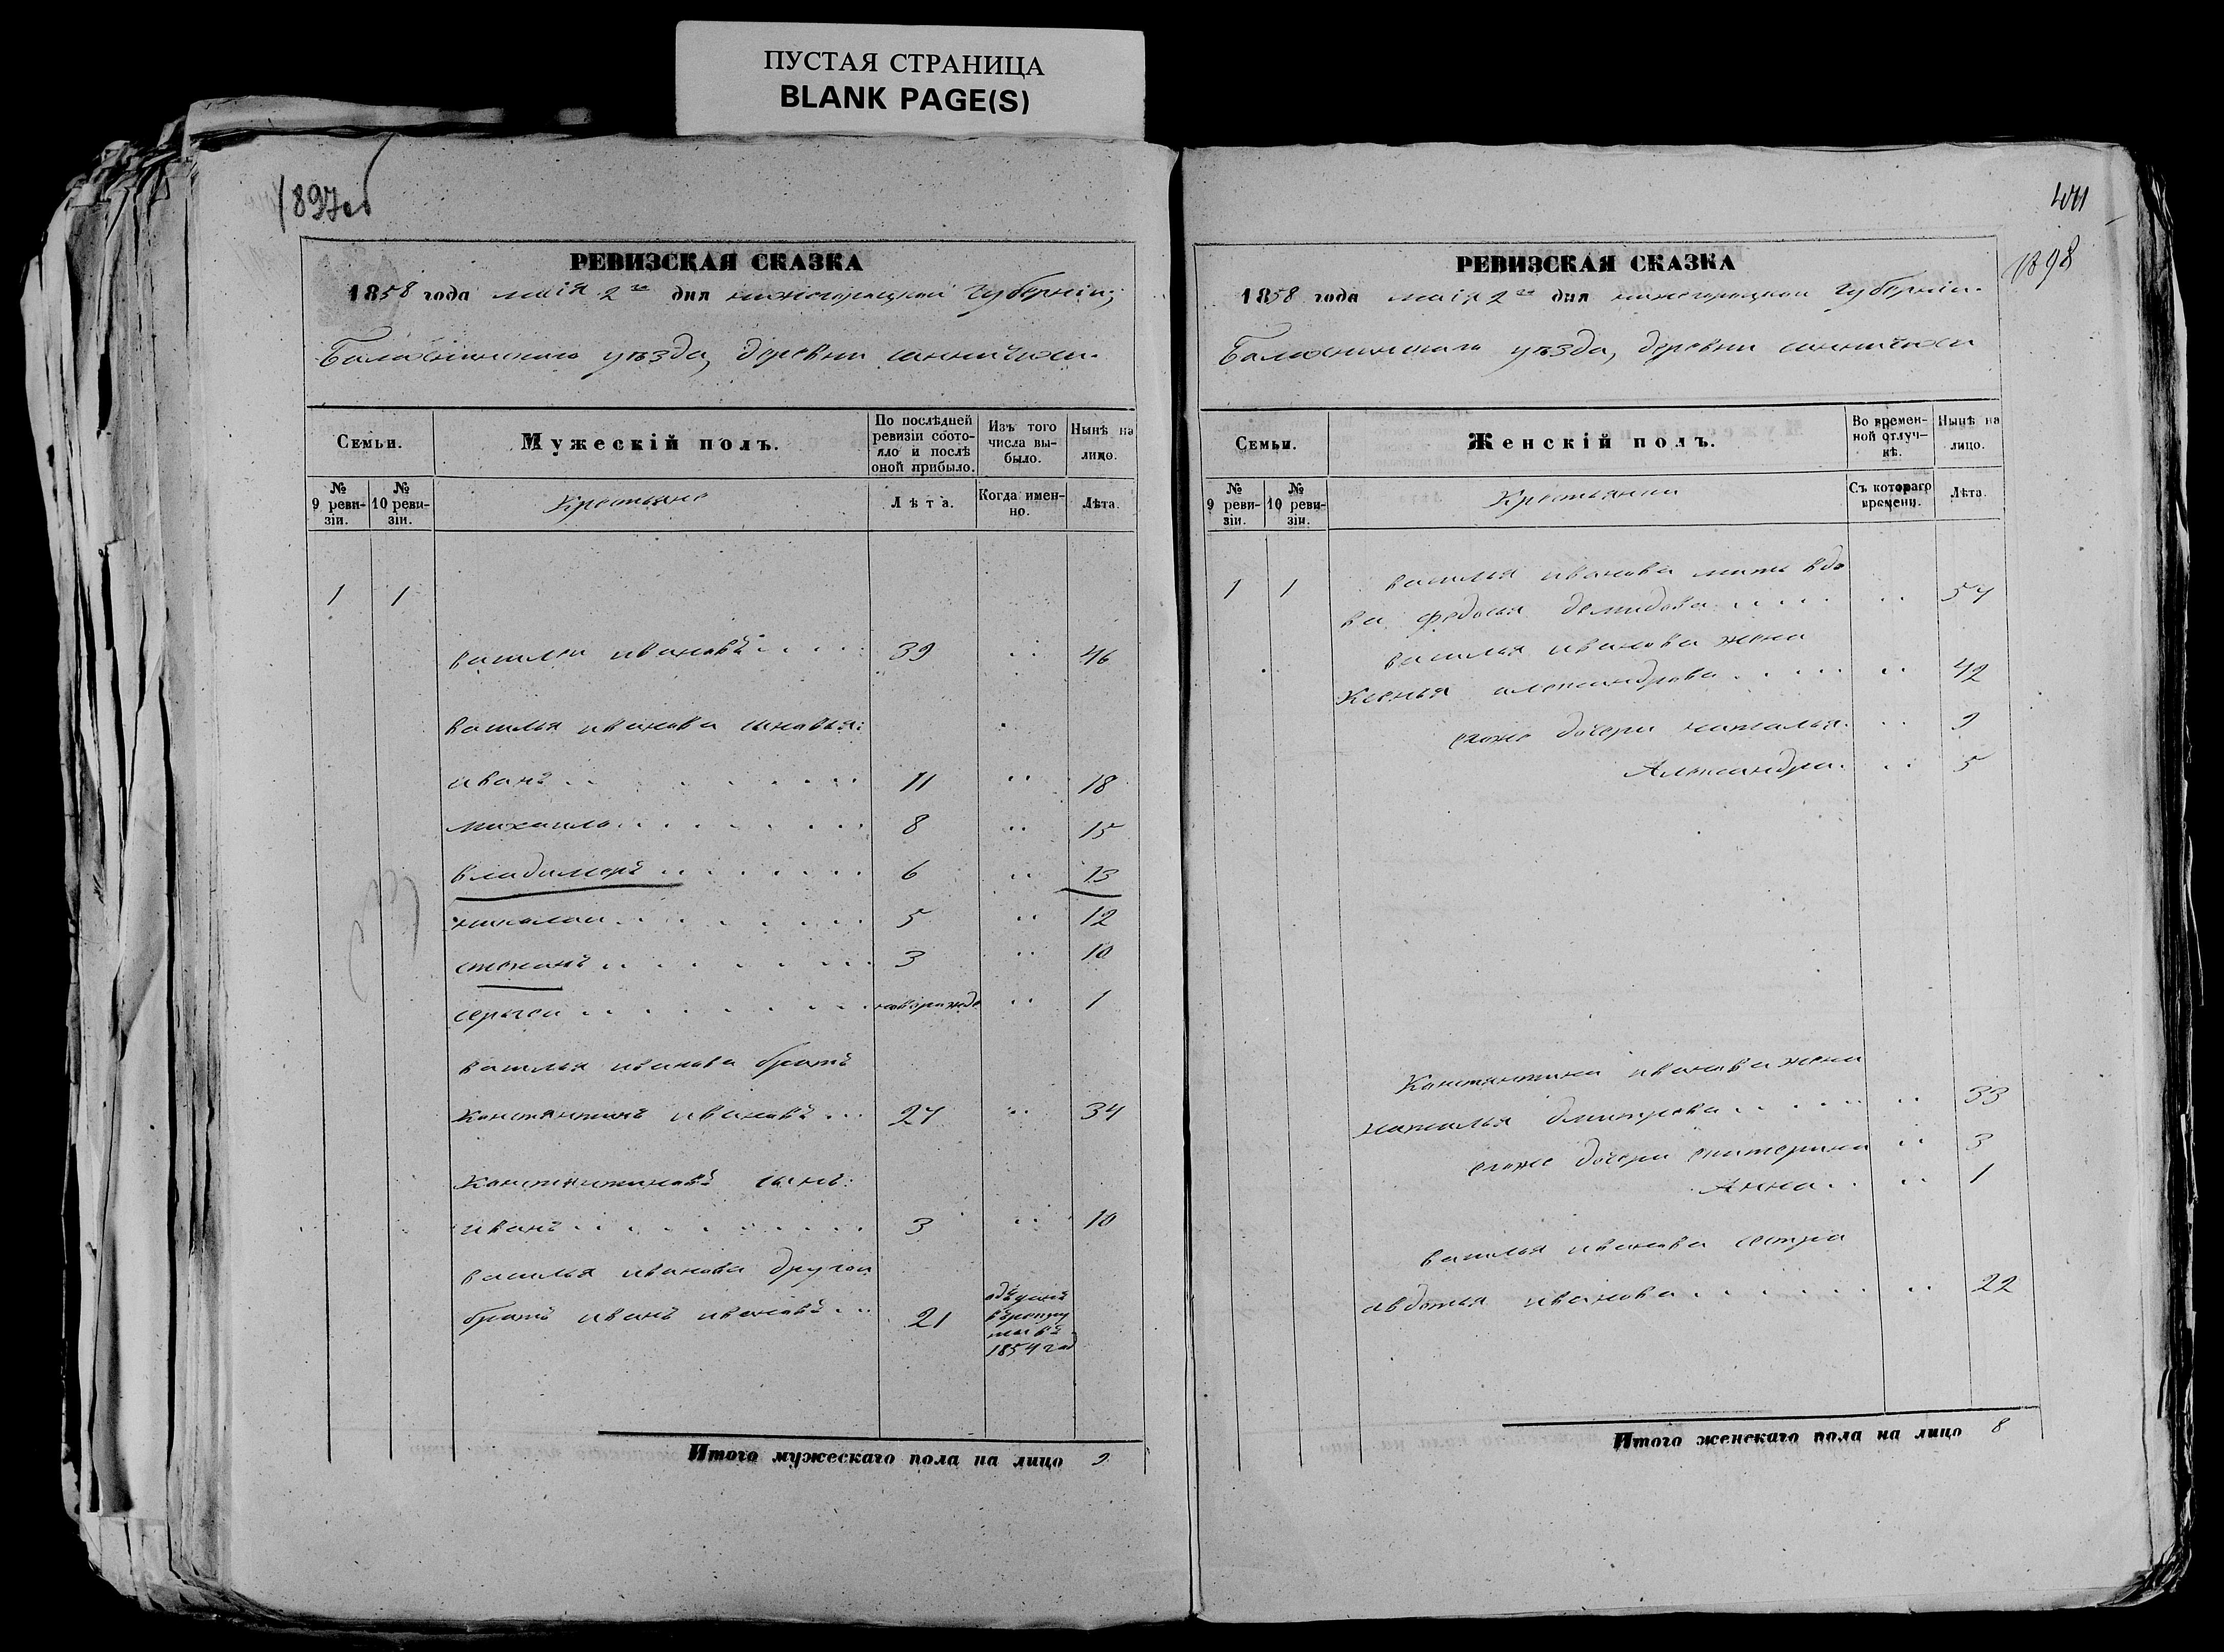 ПУСТАЯ СТРАНИЦА
BLANK PAGE(S)
1897об
РЕВИЗСКАЯ СКАЗКА
1858 года маія 2го дня нижегородской губерніи;
Балахнинскаго уѣзда, деревни
Семьи.
Мужескій полъ.
По послѣдней ревизіи состояло и послѣ оной прибыло.
Изъ того числа выбыло.
Нынѣ на лицо.
№ 9 ревизіи.
№ 10 ревизіи.
Крестьяне
Лѣта.
Когда именно.
Лѣта.
1 1
василеи ивановъ 39 46
василья иванова сыновья:
иванъ 11 18
михаило 8 15
владимеръ 6 13
николаи 5 12
степанъ 3 10
сергеи новорожде 1
василья иванова братъ
константинъ ивановъ 27 34
Константиновъ сынъ:
иванъ 3 10
василья иванова другои
братъ иванъ ивановъ 21
въ рекру
ты въ
1854 год
Итого мужескаго пола на лицо 9
441
1898
РЕВИЗСКАЯ СКАЗКА
1858 года маія 2го дня нижегородской губерніи.
Балахнинскаго уѣзда, деревни
Семьи.
Женскій полъ.
Во временной отлучкѣ.
Нынѣ на лицо.
№ 9 ревизіи.
№ 10 ревизіи.
Крестьянки
Съ котораго времени.
Лѣта.
1 1
василья иванова мать вдо
ва федосья демидова 54
василья иванова жена
Ксенья александрова 42
егоже дочери наталья 9
Александра 5
Константина иванова жена
наталья дмитрева 33
егоже дочери екатерина 3
Анна 1
василья иванова сестра
авдотья иванова 22
Итого женскаго пола на лицо 8